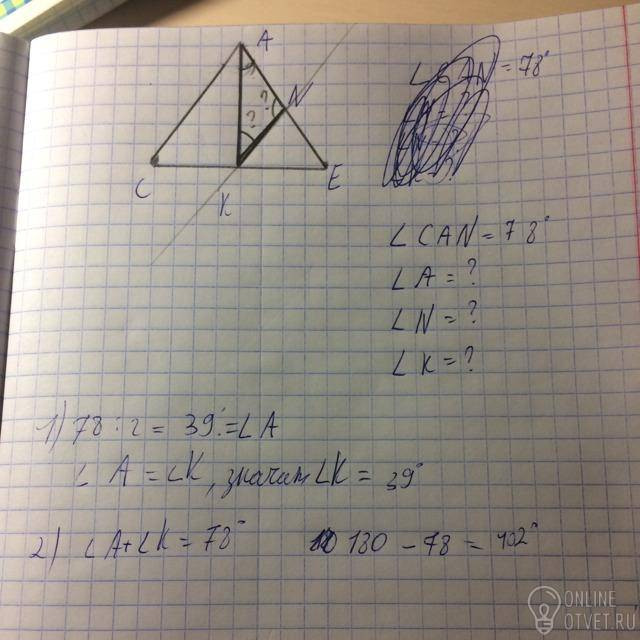 A
N
?
?
C
K
E
∠CAN = 78°
∠CAN = 78°
∠A = ?
∠N = ?
∠K = ?
1) 78 : 2 = 39° = ∠A
∠A = ∠K, значит ∠K = 39°
2) ∠A + ∠K = 78° 180 - 78 = 102°
ONLINE
OTVET.RU